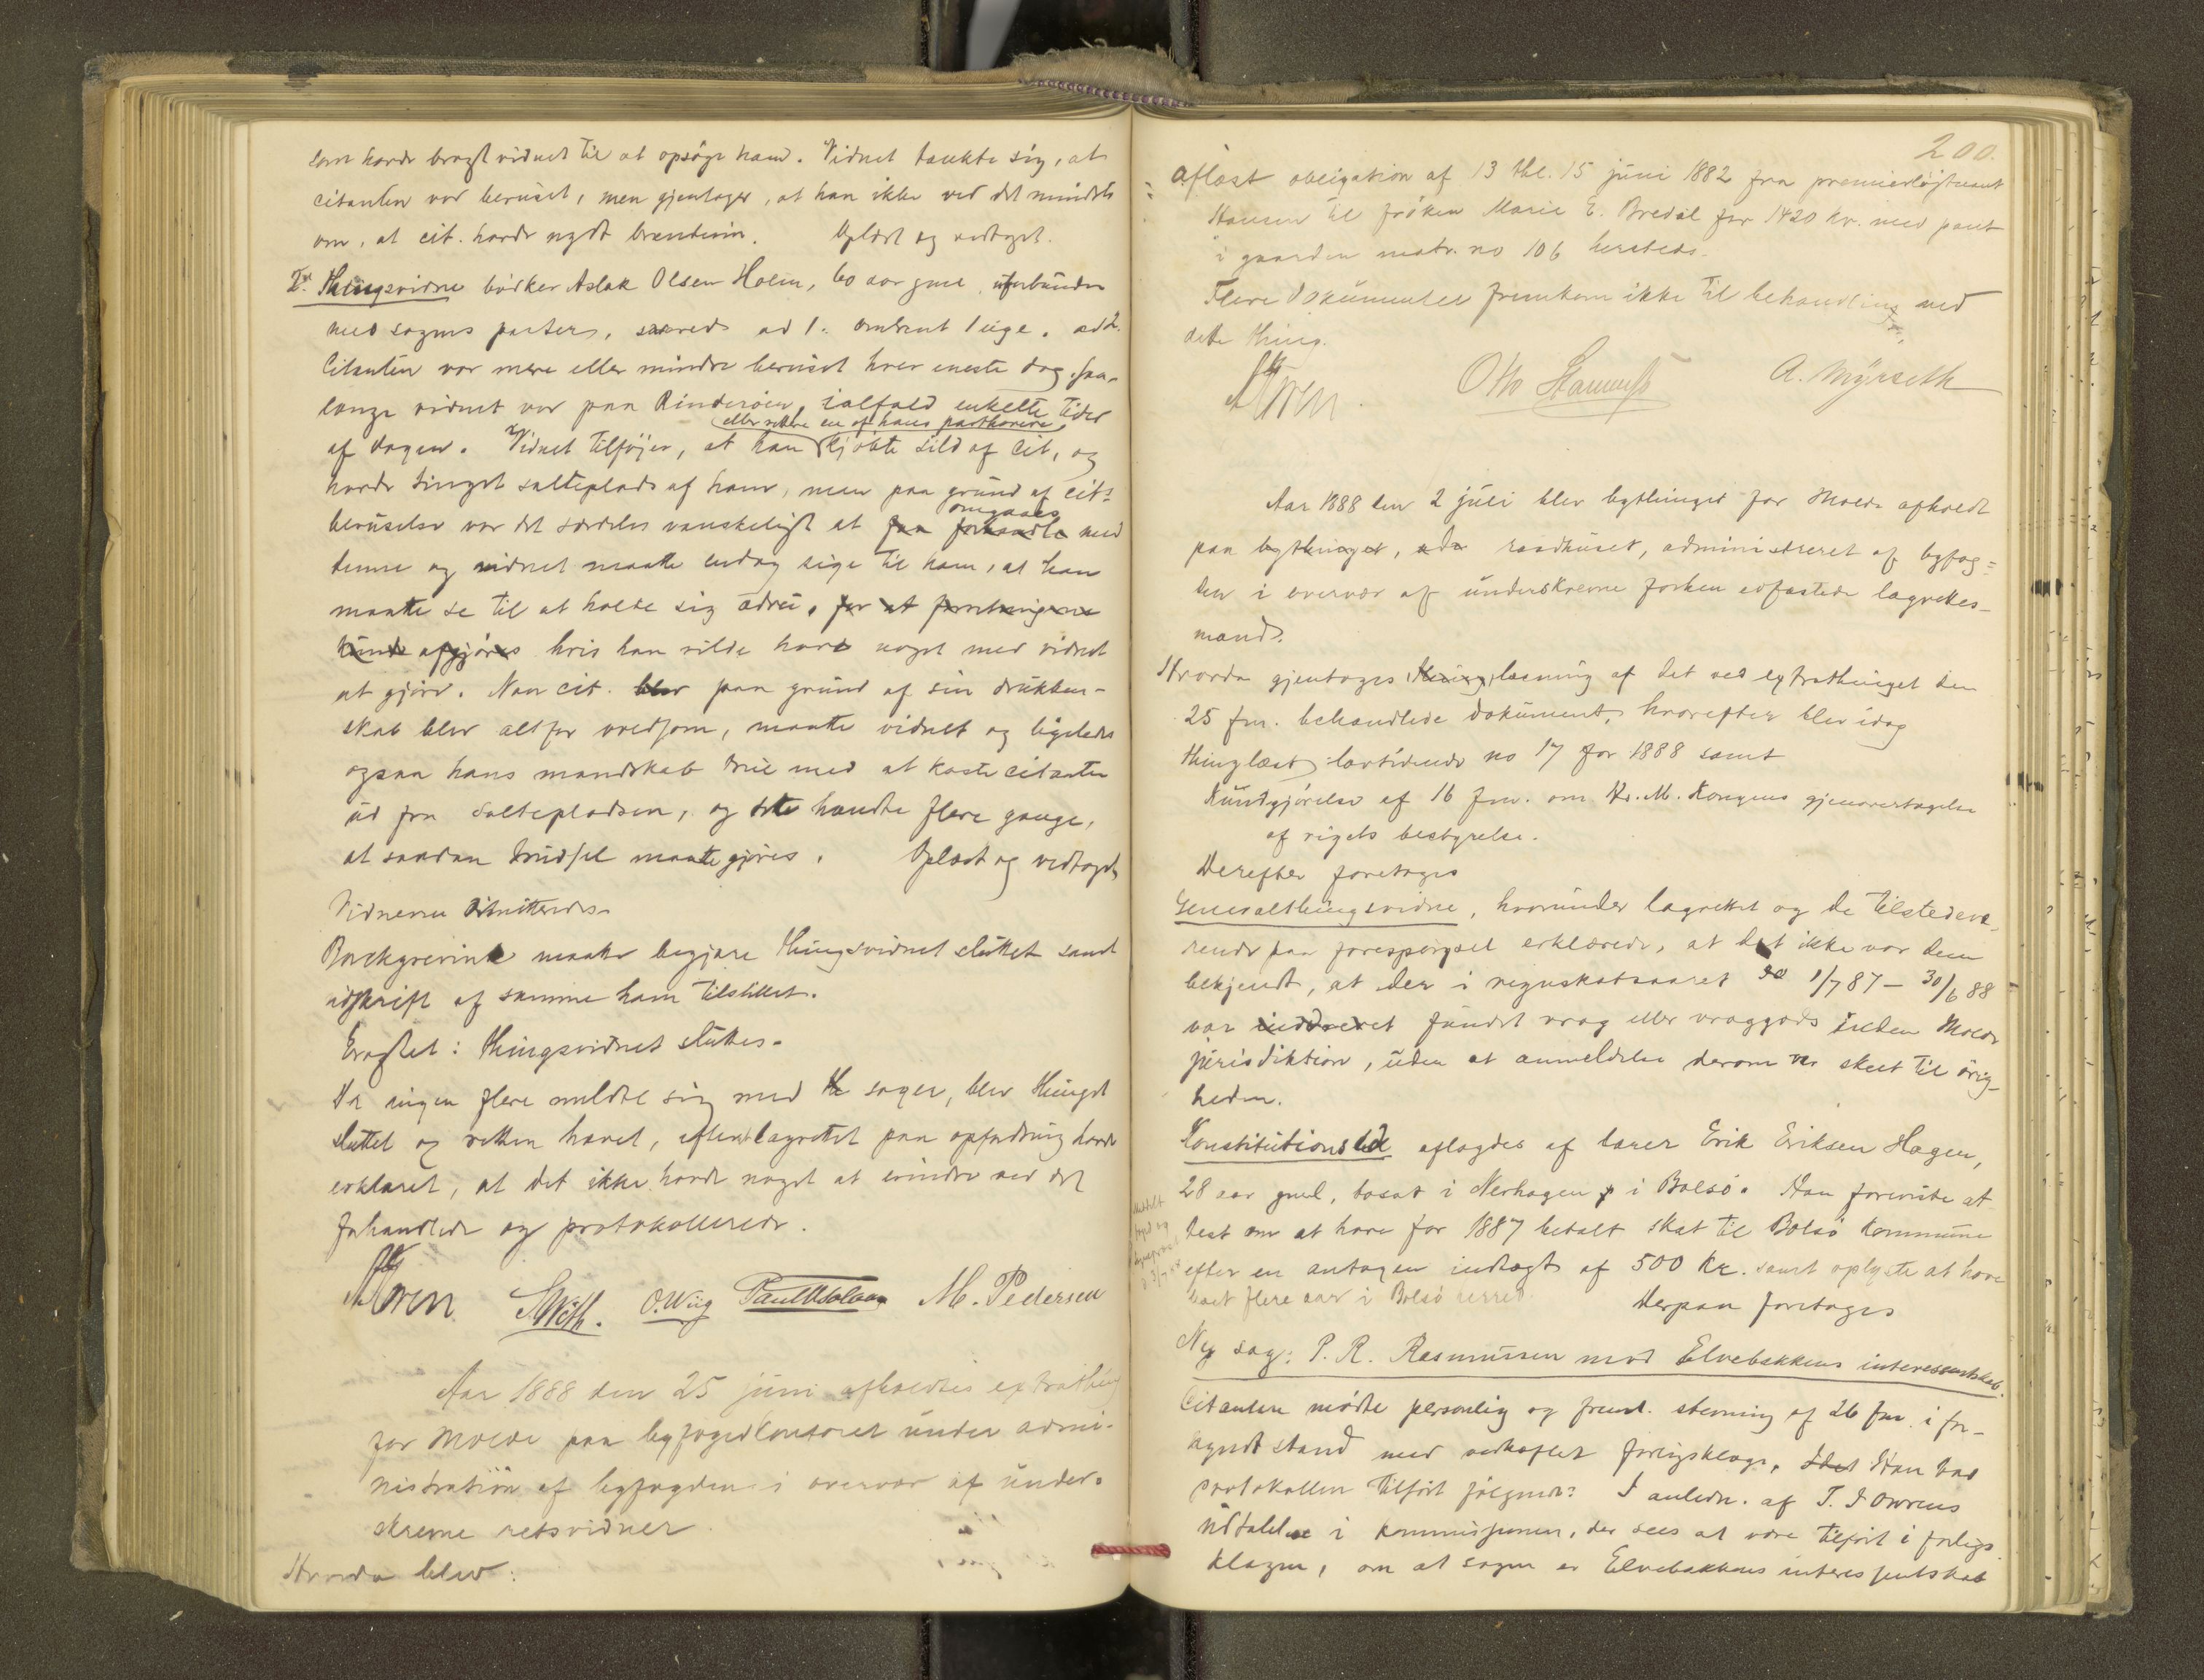 som havde bragt vidnet til at opsøge ham. Vidnet tænkte sig, at
citanten var beruset, men gjentager, at han ikke ved det mindste
om, at cit. havde nydt brændevin. Oplæst og vedtaget.
2det Thingsvidne bødker Aslak Olsen Holm, 60 aar gml, uforbunden
med sagens parter, svarede ad 1. omtrent 1 uge. ad 2.
Citanten var mere eller mindre beruset hver eneste dag, saa-
længe vidnet var paa Rinderøen, ialfald enkelte tider
eller rettere en af hans parthavere
af dagen. Vidnet tilføjer, at han kjøbte sild af cit, og
havde tinget salteplads af ham, men paa grund af cits
omgaaes
beruselse var det særdeles vanskeligt at faa forhandle med
denne og vidnet maatte endog sige til ham, at han
maatte se til at holde sig ædru, for at forretningerne
kunde afgjøres hvis han vilde have noget med vidnet
at gjøre. Naar cit. blev paa grund af sin drukken-
skab blev altfor voldsom, maatte vidnet og ligeledes
ogsaa hans mandskab true med at kaste citanten
ud fra saltepladsen, og dette hændte flere gange,
at saadan trudsel maatte gjøres. Oplæst og vedtaget,
Vidnerne dimitteredes.
Borchgrevink maatte begjære thingsvidnet sluttet samt
udskrift af samme ham tilstillet.
Eragtet: Thingsvidnet sluttes.
Da ingen flere meldte sig med sager, blev thinget
sluttet og retten hævet, efterat lagrettet paa opfordring havde
erklæret, at det ikke havde noget at erindre ved det
forhandlede og protokollerede.
O. Wiig M. Pedersen
Aar 1888 den 25 juni afholdtes extrathing
for Molde paa byfogedkontoret under admi-
nistration af byfogden i overvær af under-
skrevne retsvidner.
Hvorda blev:
200.
aflæst obligation af 13 thl. 15 juni 1882 fra premierløjtnant
Hansen til frøken Marie E. Bredal for 1420 kr. med pant
i gaarden matr. no 106 hersteds.
Flere dokumenter fremkom ikke til behandling ved
dette thing.
Otto A. Myrseth
Aar 1888 den 2 juli blev bythinget for Molde afholdt
paa bythinget, raadhuset, administreret af byfog-
den i overvær af underskrevne forhen edfæstede lagrettes-
mænd.
Hvorda gjentages thinglæsning af det ved extrathinget den
25 fm. behandlede dokument, hvorefter blev idag
thinglæst lovtidende no 17 for 1888 samt
Kundgjørelse af 16 fm. om H. M. Kongens gjenovertagelse
af rigets bestyrelse.
Derefter foretages
Generalthingsvidne, hvorunder lagrettet og de tilstedevæ-
rende paa forespørgsel erklærede, at det ikke var dem
bekjendt, at der i regnskabsaaret 1/7 87 - 30/6 88
var inddrevet fundet vrag eller vraggods inden Molde
jurisdiktion, uden at anmeldelse derom var skeet til øvrig-
heden.
Konstitutionsed aflagdes af lærer Erik Eriksen Hagen,
28 aar gml, bosat i Nerhagen i Bolsø. Han foreviste at-
test om at have for 1887 betalt skat til Bolsø kommune
efter en antagen indtægt af 500 kr. samt oplyste at have
boet flere aar i Bolsø herred. Derpaa foretages
Ny sag: P. R. Rasmussen mod Elvebakkens interessentskab.
Citanten mødte personlig og freml. stevning af 26 fm. i for-
kyndt stand med vedhæftet forligsklage, idet Han bad
protokollen tilført følgende: I anledn. af T. J Owrens
udtalelse i kommissionen, der sees at være tilført i forligs-
klagen, om at sagen er Elvebakkens interessentskab